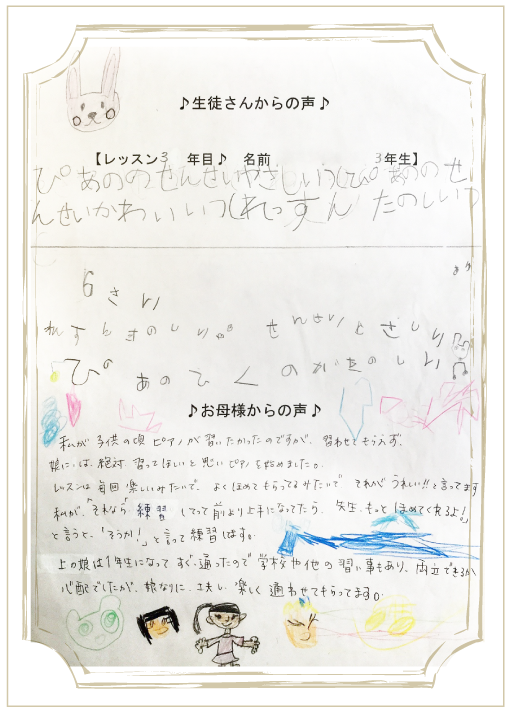 ♪生徒さんからの声♪
【レッスン3 年目♪ 名前 3年生】
ぴあののせんせいやさしいうしぴあののせ
んせいかわいいうしれっすん たのしいう
6さい
れすんたのしい せんせいやさしい
ぴあのひくのがたのしい
♪お母様からの声♪
私が子供の頃ピアノが習いたかったのですが、習わせてもらえず、
娘には、絶対習ってほしいと思いピアノを始めました。
レッスンは毎回楽しいみたいで、よくほめてもらってるみたいで それがうれしい!!と言ってます
私が、"それなら練習しってって前より上手になってたら、先生、もっとほめてくれるよ!"
と言うと、「そうか!」と言って練習します。
上の娘は1年生になってすぐ、通ったので学校や他の習い事もあり、両立できるか
心配でしたが、娘なりに、工夫し楽しく通わせてもらってます。